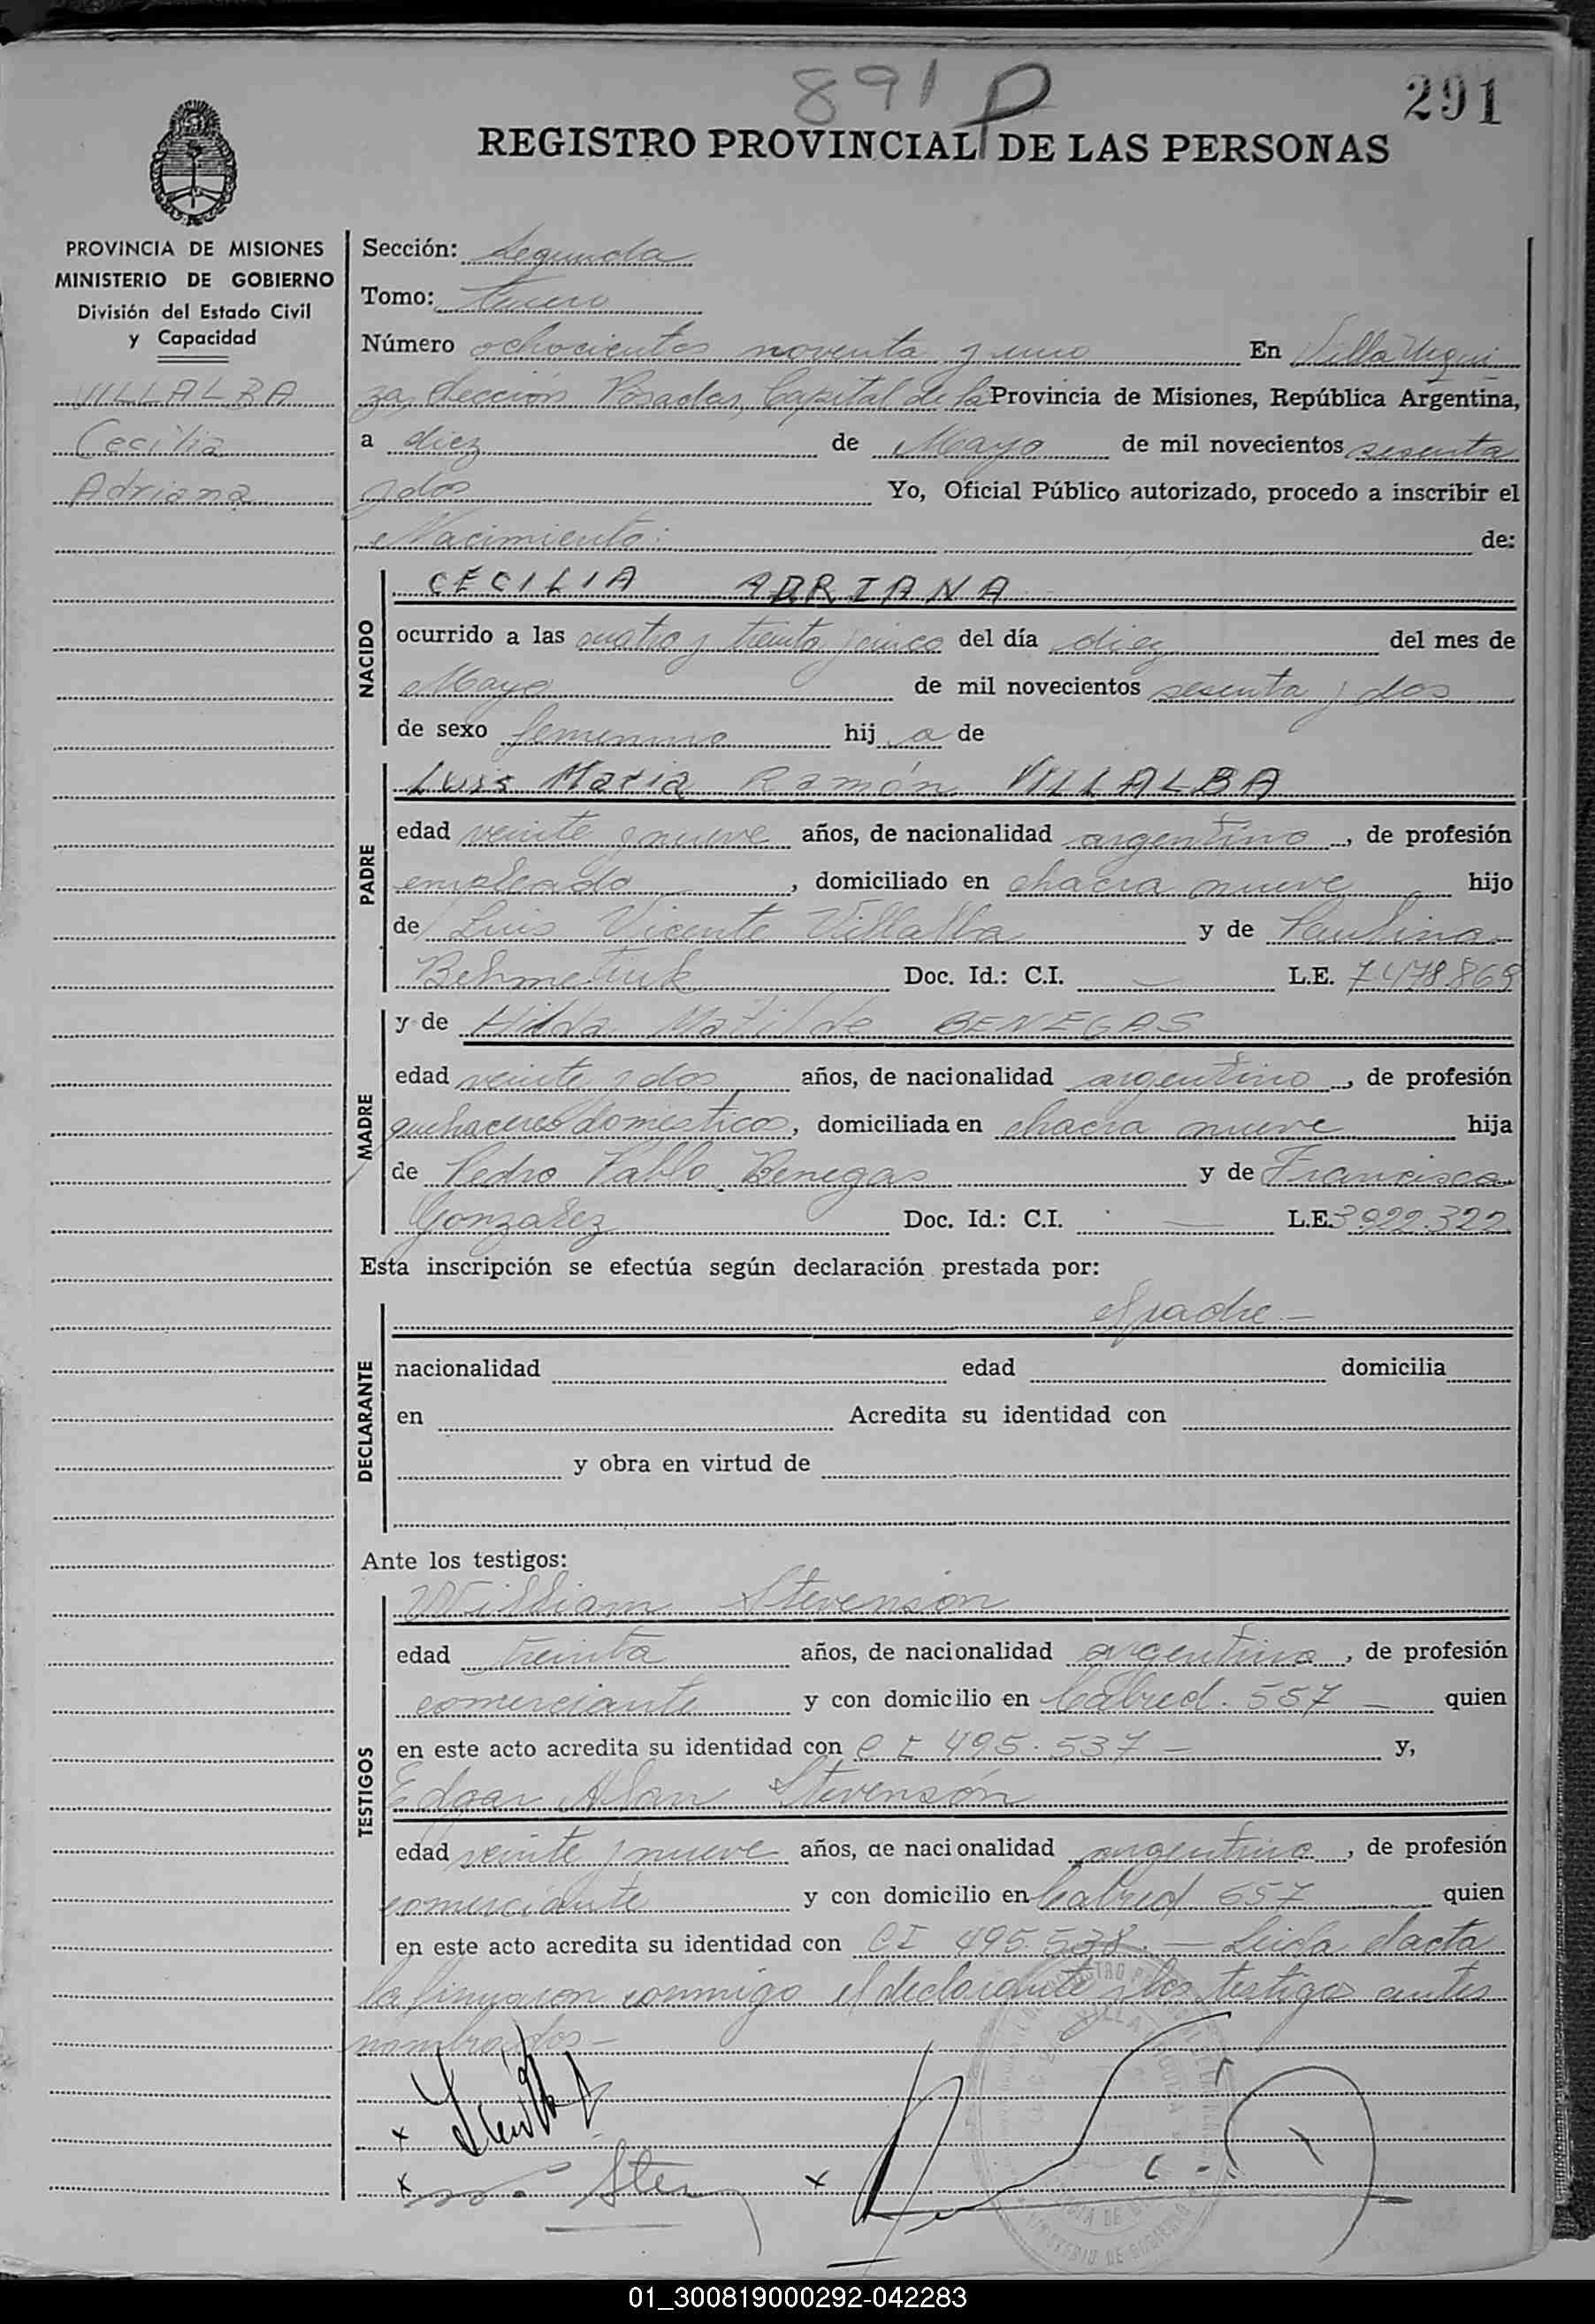 891 P
291
REGISTRO PROVINCIAL DE LAS PERSONAS
PROVINCIA DE MISIONES
MINISTERIO DE GOBIERNO
División del Estado Civil
y Capacidad
VILLALBA
Cecilia
Adriana
Sección: Segunda
Tomo: tercero
Número ochocientos noventa y uno En Villa Urqui
za, Sección Posadas, Capital de la Provincia de Misiones, República Argentina,
a diez de Mayo de mil novecientos sesenta
y dos Yo, Oficial Público autorizado, procedo a inscribir el
Nacimiento: de:
NACIDO
CECILIA ADRIANA
ocurrido a las cuatro y treinta y cinco del día diez del mes de
Mayo de mil novecientos sesenta y dos
de sexo femenino hij a de
PADRE
Luis Maria Ramón VILLALBA
edad veinte y nueve años, de nacionalidad argentino, de profesión
empleado, domiciliado en chacra nueve hijo
de Luis Vicente Villalba y de Paulina
Behmetiuk Doc. Id.: C.I. — L.E. 7.478.869
MADRE
y de Hilda Matilde BENEGAS
edad veinte y dos años, de nacionalidad argentino, de profesión
quehaceres domesticos, domiciliada en chacra nueve hija
de Pedro Pablo Benegas y de Francisca
Gonzalez Doc. Id.: C.I. — L.E. 3.922.322
Esta inscripción se efectúa según declaración prestada por:
DECLARANTE
el padre —
nacionalidad edad domicilia
en Acredita su identidad con
y obra en virtud de
Ante los testigos:
TESTIGOS
William Stevenson
edad treinta años, de nacionalidad argentino, de profesión
comerciante y con domicilio en Cabred. 557 — quien
en este acto acredita su identidad con C I 495.537 — y,
Edgar Alan Stevensón
edad veinte y nueve años, de nacionalidad argentino, de profesión
comerciante y con domicilio en Cabred 657 quien
en este acto acredita su identidad con CI 495.538. — Leida el acta
la firmaron conmigo el declarante y los testigos antes
nombrados —
01_300819000292-042283